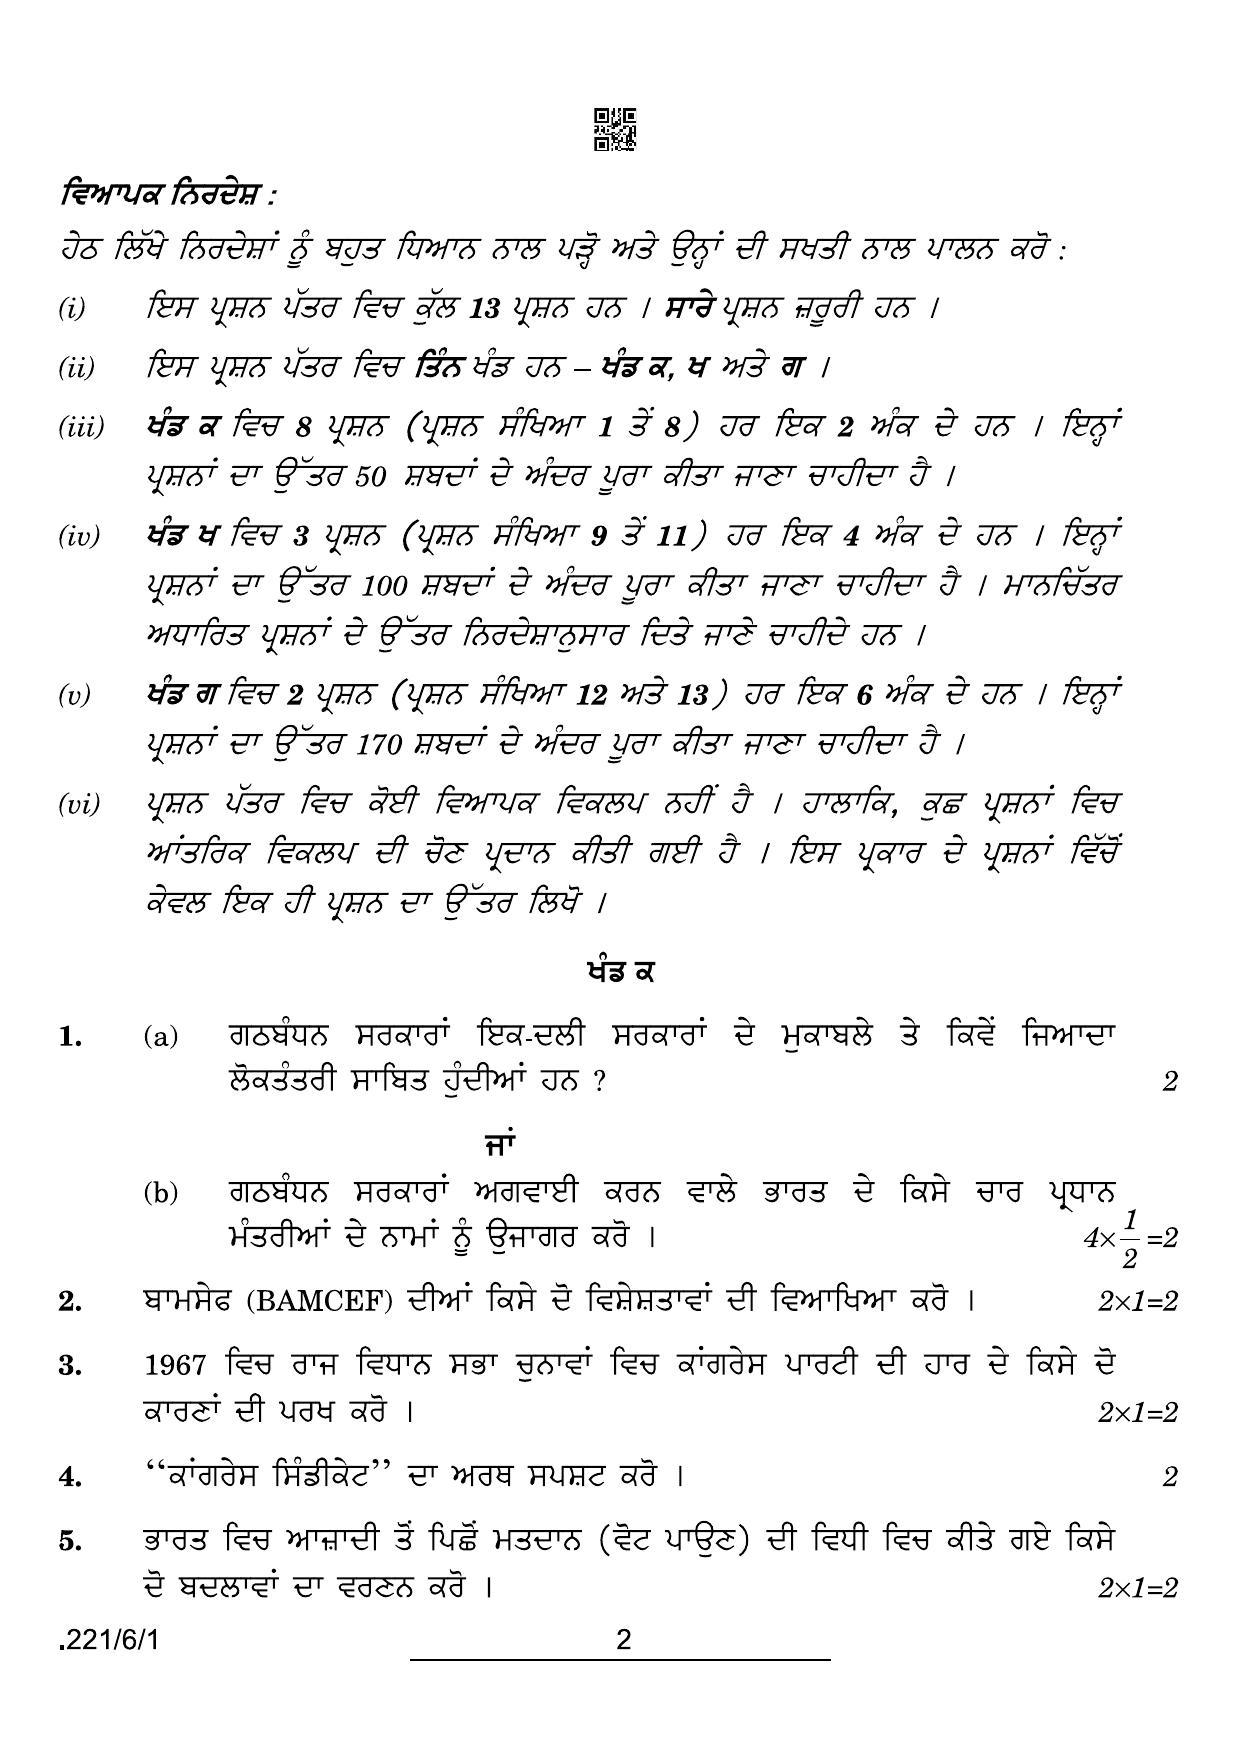 ਵਿਆਪਕ ਨਿਰਦੇਸ਼ :
ਹੇਠ ਲਿੱਖੇ ਨਿਰਦੇਸ਼ਾਂ ਨੂੰ ਬਹੁਤ ਧਿਆਨ ਨਾਲ ਪੜ੍ਹੋ ਅਤੇ ਉਨ੍ਹਾਂ ਦੀ ਸਖਤੀ ਨਾਲ ਪਾਲਨ ਕਰੋ :
(i) ਇਸ ਪ੍ਰਸ਼ਨ ਪੱਤਰ ਵਿਚ ਕੁੱਲ 13 ਪ੍ਰਸ਼ਨ ਹਨ । ਸਾਰੇ ਪ੍ਰਸ਼ਨ ਜ਼ਰੂਰੀ ਹਨ ।
(ii) ਇਸ ਪ੍ਰਸ਼ਨ ਪੱਤਰ ਵਿਚ ਤਿੰਨ ਖੰਡ ਹਨ – ਖੰਡ ਕ, ਖ ਅਤੇ ਗ ।
(iii) ਖੰਡ ਕ ਵਿਚ 8 ਪ੍ਰਸ਼ਨ (ਪ੍ਰਸ਼ਨ ਸੰਖਿਆ 1 ਤੋਂ 8) ਹਰ ਇਕ 2 ਅੰਕ ਦੇ ਹਨ । ਇਨ੍ਹਾਂ
ਪ੍ਰਸ਼ਨਾਂ ਦਾ ਉੱਤਰ 50 ਸ਼ਬਦਾਂ ਦੇ ਅੰਦਰ ਪੂਰਾ ਕੀਤਾ ਜਾਣਾ ਚਾਹੀਦਾ ਹੈ ।
(iv) ਖੰਡ ਖ ਵਿਚ 3 ਪ੍ਰਸ਼ਨ (ਪ੍ਰਸ਼ਨ ਸੰਖਿਆ 9 ਤੋਂ 11) ਹਰ ਇਕ 4 ਅੰਕ ਦੇ ਹਨ । ਇਨ੍ਹਾਂ
ਪ੍ਰਸ਼ਨਾਂ ਦਾ ਉੱਤਰ 100 ਸ਼ਬਦਾਂ ਦੇ ਅੰਦਰ ਪੂਰਾ ਕੀਤਾ ਜਾਣਾ ਚਾਹੀਦਾ ਹੈ । ਮਾਨਚਿੱਤਰ
ਅਧਾਰਿਤ ਪ੍ਰਸ਼ਨਾਂ ਦੇ ਉੱਤਰ ਨਿਰਦੇਸ਼ਾਨੁਸਾਰ ਦਿਤੇ ਜਾਣੇ ਚਾਹੀਦੇ ਹਨ ।
(v) ਖੰਡ ਗ ਵਿਚ 2 ਪ੍ਰਸ਼ਨ (ਪ੍ਰਸ਼ਨ ਸੰਖਿਆ 12 ਅਤੇ 13) ਹਰ ਇਕ 6 ਅੰਕ ਦੇ ਹਨ । ਇਨ੍ਹਾਂ
ਪ੍ਰਸ਼ਨਾਂ ਦਾ ਉੱਤਰ 170 ਸ਼ਬਦਾਂ ਦੇ ਅੰਦਰ ਪੂਰਾ ਕੀਤਾ ਜਾਣਾ ਚਾਹੀਦਾ ਹੈ ।
(vi) ਪ੍ਰਸ਼ਨ ਪੱਤਰ ਵਿਚ ਕੋਈ ਵਿਆਪਕ ਵਿਕਲਪ ਨਹੀਂ ਹੈ । ਹਾਲਾਕਿ, ਕੁਛ ਪ੍ਰਸ਼ਨਾਂ ਵਿਚ
ਆਂਤਰਿਕ ਵਿਕਲਪ ਦੀ ਚੋਣ ਪ੍ਰਦਾਨ ਕੀਤੀ ਗਈ ਹੈ । ਇਸ ਪ੍ਰਕਾਰ ਦੇ ਪ੍ਰਸ਼ਨਾਂ ਵਿੱਚੋਂ
ਕੇਵਲ ਇਕ ਹੀ ਪ੍ਰਸ਼ਨ ਦਾ ਉੱਤਰ ਲਿਖੋ ।
ਖੰਡ ਕ
1. (a) ਗਠਬੰਧਨ ਸਰਕਾਰਾਂ ਇਕ-ਦਲੀ ਸਰਕਾਰਾਂ ਦੇ ਮੁਕਾਬਲੇ ਤੇ ਕਿਵੇਂ ਜਿਆਦਾ
ਲੋਕਤੰਤਰੀ ਸਾਬਿਤ ਹੁੰਦੀਆਂ ਹਨ ? 2
ਜਾਂ
(b) ਗਠਬੰਧਨ ਸਰਕਾਰਾਂ ਅਗਵਾਈ ਕਰਨ ਵਾਲੇ ਭਾਰਤ ਦੇ ਕਿਸੇ ਚਾਰ ਪ੍ਰਧਾਨ
ਮੰਤਰੀਆਂ ਦੇ ਨਾਮਾਂ ਨੂੰ ਉਜਾਗਰ ਕਰੋ । 4×1/2=2
2. ਬਾਮਸੇਫ (BAMCEF) ਦੀਆਂ ਕਿਸੇ ਦੋ ਵਿਸ਼ੇਸ਼ਤਾਵਾਂ ਦੀ ਵਿਆਖਿਆ ਕਰੋ । 2×1=2
3. 1967 ਵਿਚ ਰਾਜ ਵਿਧਾਨ ਸਭਾ ਚੁਨਾਵਾਂ ਵਿਚ ਕਾਂਗਰੇਸ ਪਾਰਟੀ ਦੀ ਹਾਰ ਦੇ ਕਿਸੇ ਦੋ
ਕਾਰਣਾਂ ਦੀ ਪਰਖ ਕਰੋ । 2×1=2
4. ‘‘ਕਾਂਗਰੇਸ ਸਿੰਡੀਕੇਟ’’ ਦਾ ਅਰਥ ਸਪਸ਼ਟ ਕਰੋ । 2
5. ਭਾਰਤ ਵਿਚ ਆਜ਼ਾਦੀ ਤੋਂ ਪਿਛੋਂ ਮਤਦਾਨ (ਵੋਟ ਪਾਉਣ) ਦੀ ਵਿਧੀ ਵਿਚ ਕੀਤੇ ਗਏ ਕਿਸੇ
ਦੋ ਬਦਲਾਵਾਂ ਦਾ ਵਰਣਨ ਕਰੋ । 2×1=2
.221/6/1 2